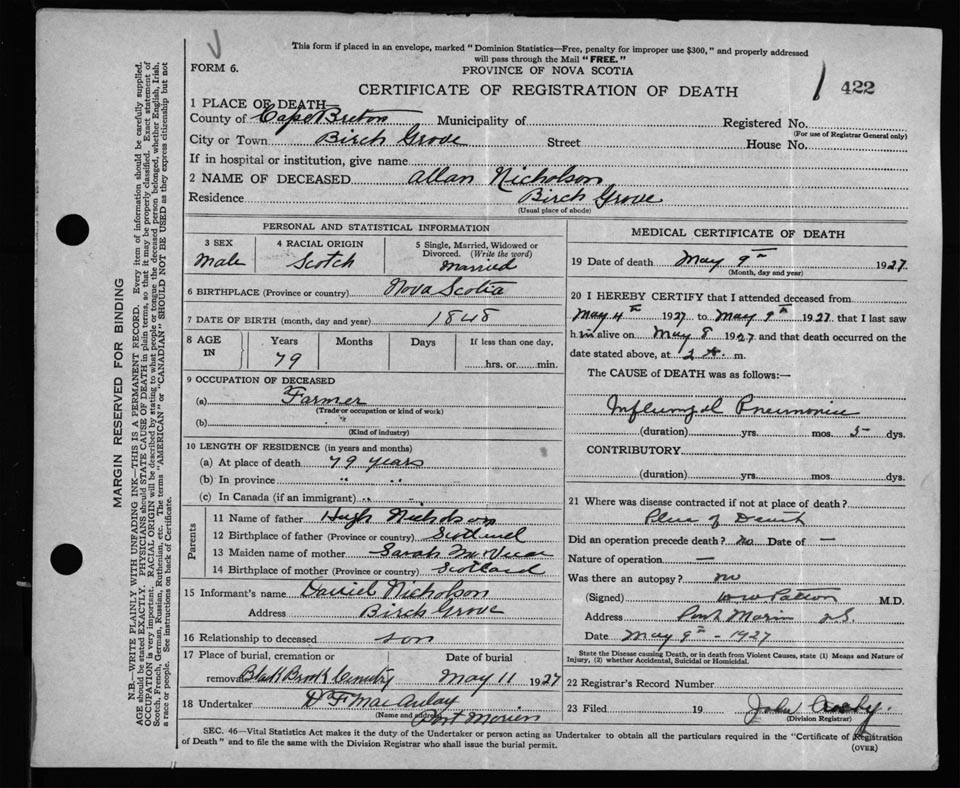 This form if placed in an envelope, marked "Dominion Statistics—Free, penalty for improper use $300," and properly addressed
will pass through the Mail "FREE."
FORM 6.
PROVINCE OF NOVA SCOTIA
CERTIFICATE OF REGISTRATION OF DEATH
1 422
1 PLACE OF DEATH
County of Cape Breton Municipality of Registered No.
(For use of Registrar General only)
City or Town Birch Grove Street House No.
If in hospital or institution, give name
2 NAME OF DECEASED Allan Nicholson
Residence Birch Grove
(Usual place of abode)
PERSONAL AND STATISTICAL INFORMATION
3 SEX
Male
4 RACIAL ORIGIN
Scotch
5 Single, Married, Widowed or
Divorced. (Write the word)
Married
6 BIRTHPLACE (Province or country) Nova Scotia
7 DATE OF BIRTH (month, day and year) 1848
8 AGE
IN
Years
79
Months
Days
If less than one day,
hrs. or min.
9 OCCUPATION OF DECEASED
(a) Farmer
(Trade or occupation or kind of work)
(b)
(Kind of industry)
10 LENGTH OF RESIDENCE (in years and months)
(a) At place of death 79 years
(b) In province " "
(c) In Canada (if an immigrant) " "
Parents
11 Name of father Hugh Nicholson
12 Birthplace of father (Province or country) Scotland
13 Maiden name of mother Sarah
14 Birthplace of mother (Province or country) Scotland
15 Informant's name Daniel Nicholson
Address Birch Grove
16 Relationship to deceased son
17 Place of burial, cremation or
removal Black Brook Cemetry
Date of burial
May 11 1927
18 Undertaker D F MacAulay
(Name and address)
Port Morien
MEDICAL CERTIFICATE OF DEATH
19 Date of death May 9th 1927
(Month, day and year)
20 I HEREBY CERTIFY that I attended deceased from
May 4th 1927 to May 9th 1927 that I last saw
him alive on May 8 1927 and that death occurred on the
date stated above, at 2 a. m.
The CAUSE of DEATH was as follows:—
Influenzal Pneumonia
(duration) yrs. mos. 5 dys.
CONTRIBUTORY
(duration) yrs. mos. dys.
21 Where was disease contracted if not at place of death?
Place of Death
Did an operation precede death? no Date of —
Nature of operation —
Was there an autopsy? no
(Signed) Patton M.D.
Address Port Morien N.S.
Date May 9th - 1927
State the Disease causing Death, or in death from Violent Causes, state (1) Means and Nature of
Injury, (2) whether Accidental, Suicidal or Homicidal.
22 Registrar's Record Number
23 Filed 19 John
(Division Registrar)
SEC. 46—Vital Statistics Act makes it the duty of the Undertaker or person acting as Undertaker to obtain all the particulars required in the "Certificate of Registration
of Death" and to file the same with the Division Registrar who shall issue the burial permit.
(OVER)
MARGIN RESERVED FOR BINDING
N.B.—WRITE PLAINLY WITH UNFADING INK—THIS IS A PERMANENT RECORD. Every item of information should be carefully supplied.
AGE should be stated EXACTLY. PHYSICIANS should STATE CAUSE OF DEATH in plain terms, so that it may be properly classified. Exact statement of
OCCUPATION is very important. RACIAL ORIGIN will be described by stating to what people or tongue the deceased person belonged, whether English, Irish,
Scotch, French, German, Russian, Ruthenian, etc. The terms "AMERICAN" or "CANADIAN" SHOULD NOT BE USED as they express citizenship but not
a race or people. See instructions on back of Certificate.